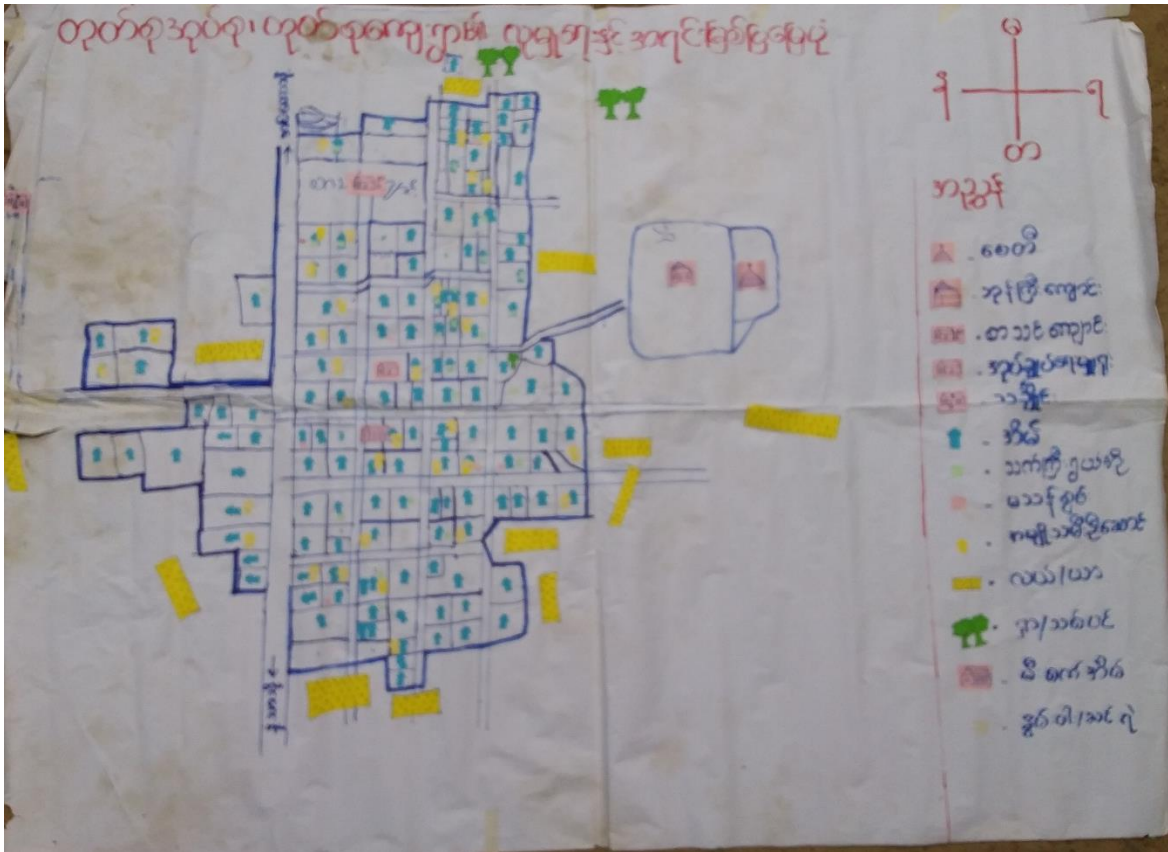 တုတ်စုအုပ်စု၊ တုတ်စုကျေးရွာ၏ လူမှုရေးနှင့် အရင်းမြစ်ပြမြေပုံ
မ
န
ရ
တ
အညွှန်း
စေတီ
ဘုန်းကြီးကျောင်း
စာသင်ကျောင်း
အုပ်ချုပ်ရေးမှူးရုံး
သချိုင်း
အိမ်
သက်ကြီးရွယ်အို
မသန်စွမ်း
အမျိုးသမီးဦးဆောင်
လယ်/ယာ
ခြံ/သစ်ပင်
မီးစက်အိမ်
နွမ်းပါး/ဆင်းရဲ